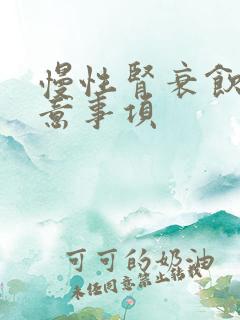 慢性腎衰飲
意事項
可可的奶油
未經同意禁止轉載